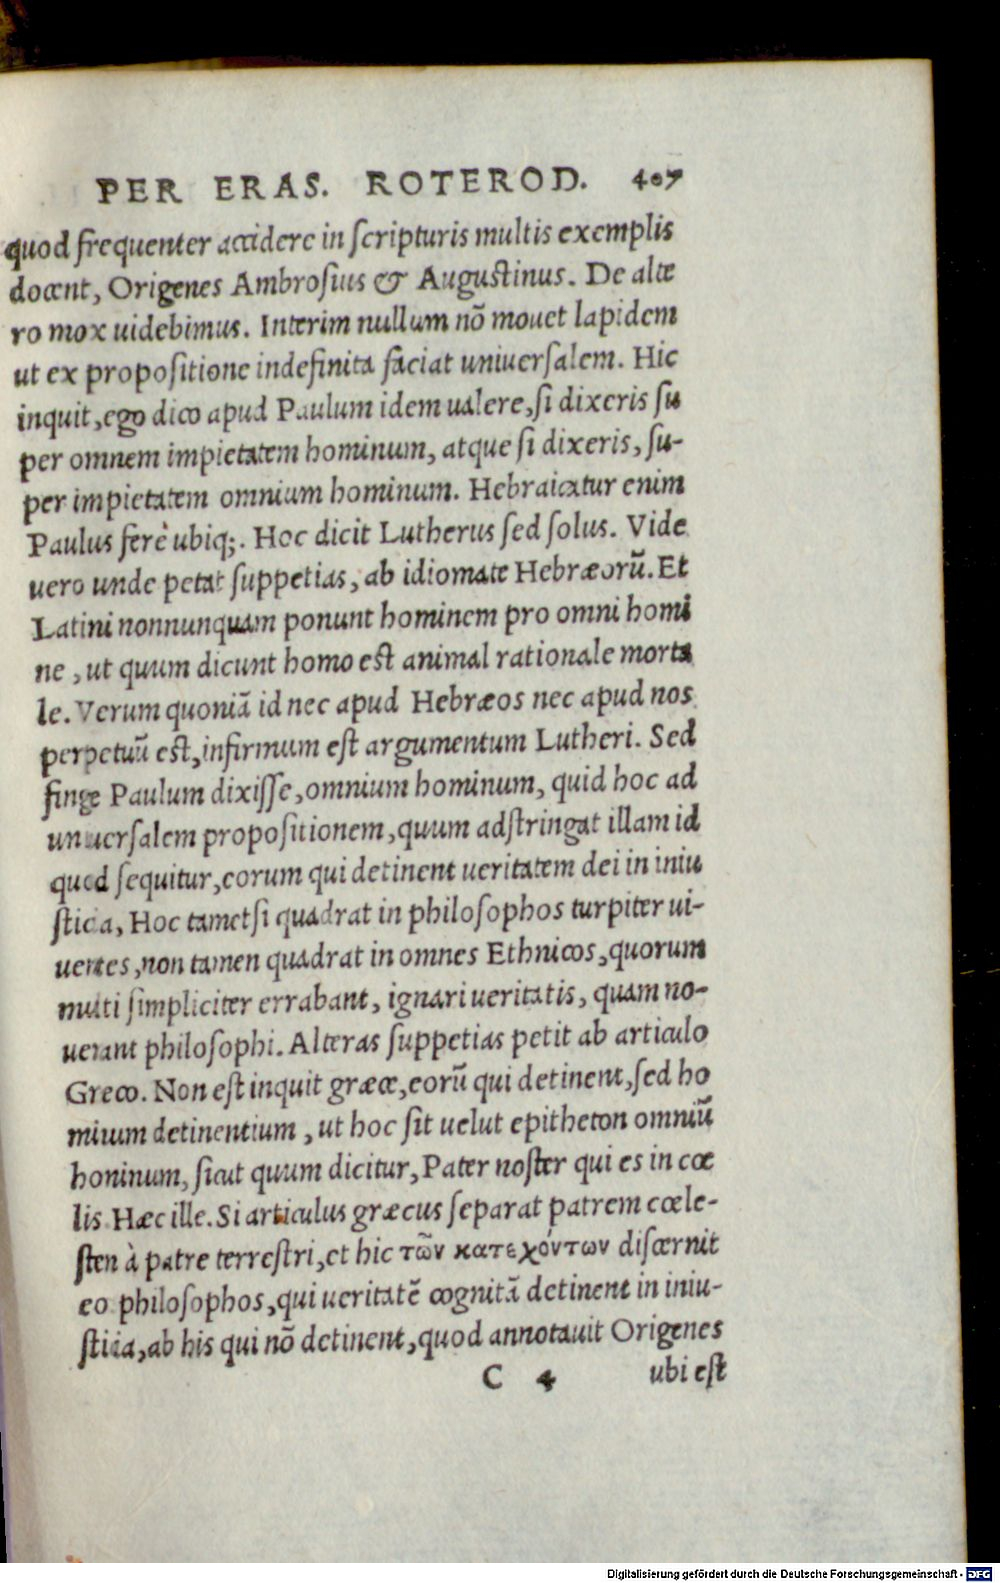 PER ERAS. ROTEROD. 407
quod frequenter accidere in scripturis multis exemplis
docent, Origenes Ambrosius & Augustinus. De alte
ro mox uidebimus. Interim nullum nõ mouet lapidem
ut ex propositione indefinita faciat uniuersalem. Hic
inquit, ego dico apud Paulum idem ualere, si dixeris su
per omnem impietatem hominum, atque si dixeris, su-
per impietatem omnium hominum. Hebraicatur enim
Paulus ferè ubiq;. Hoc dicit Lutherus sed solus. Vide
uero unde petat suppetias, ab idiomate Hebræorũ. Et
Latini nonnunquam ponunt hominem pro omni homi
ne, ut quum dicunt homo est animal rationale morta
le. Verum quoniã id nec apud Hebræos nec apud nos
perpetuũ est, infirmum est argumentum Lutheri. Sed
finge Paulum dixisse, omnium hominum, quid hoc ad
uniuersalem propositionem, quum adstringat illam id
quod sequitur, eorum qui detinent ueritatem dei in iniu
sticia, Hoc tametsi quadrat in philosophos turpiter ui-
uentes, non tamen quadrat in omnes Ethnicos, quorum
multi simpliciter errabant, ignari ueritatis, quam no-
uerant philosophi. Alteras suppetias petit ab articulo
Greco. Non est inquit græce, eorũ qui detinent, sed ho
minum detinentium, ut hoc sit uelut epitheton omniũ
hominum, sicut quum dicitur, Pater noster qui es in cœ
lis. Hæc ille. Si articulus græcus separat patrem cœle-
stem à patre terrestri, et hic τῶν κατεχόντων discernit
eo philosophos, qui ueritatẽ cognitã detinent in iniu-
sticia, ab his qui nõ detinent, quod annotauit Origenes
C 4 ubi est
Digitalisierung gefördert durch die Deutsche Forschungsgemeinschaft - DFG